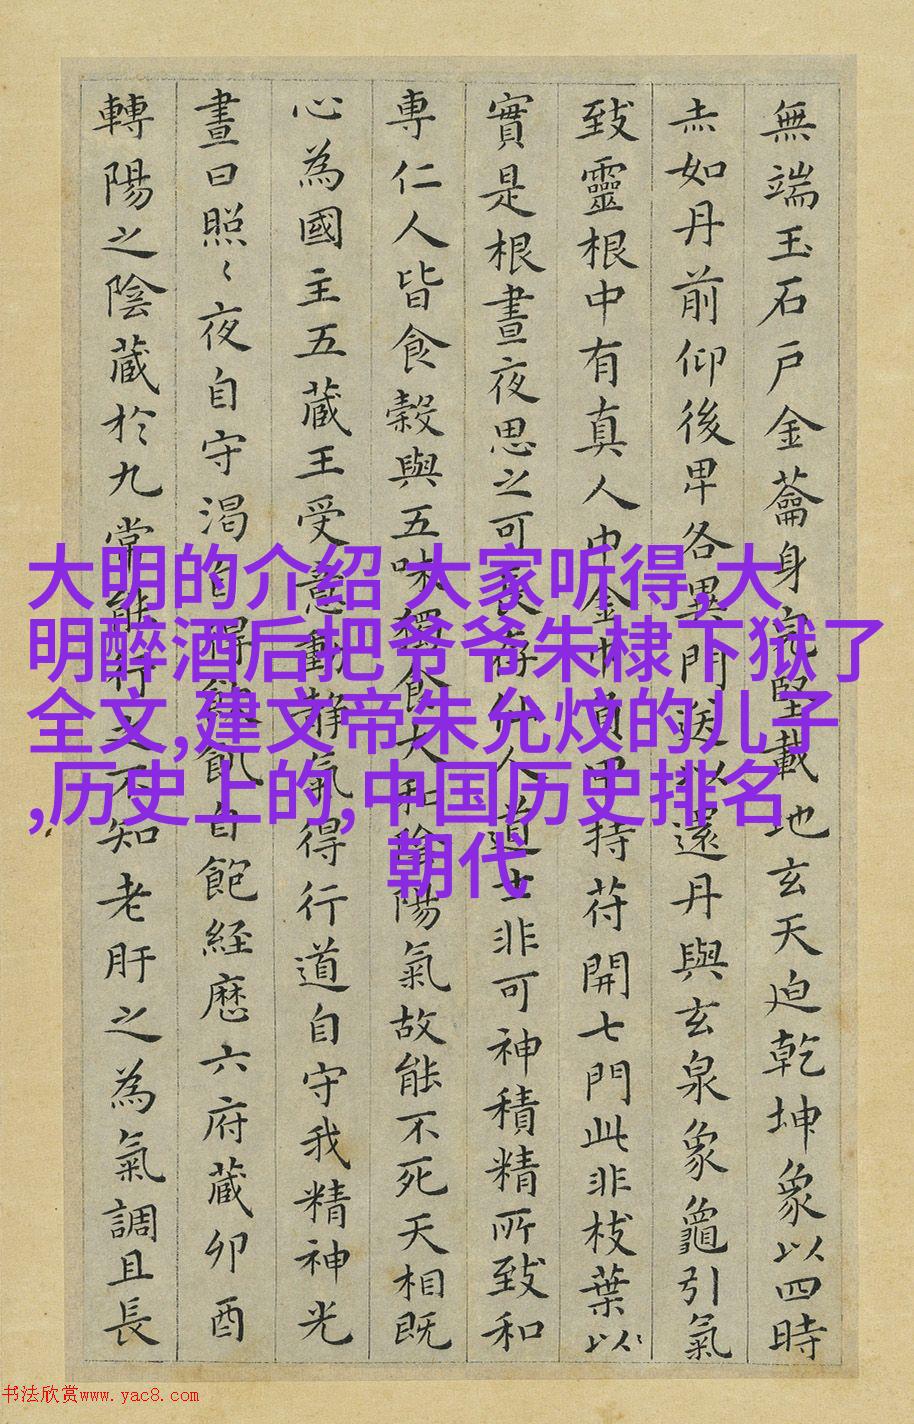 無端玉石戶金蘥身完堅載地玄天迫乾坤象以四時
赤如丹前仰後卑各異門送以還丹與玄泉象龜引氣
致靈根中有真人巾金巾負甲持苻開七門此非枝葉以
實是根晝夜思之可長存仙人道士非可神積精所致和
專仁人皆食穀與五味獨食大和陰陽氣故能不死天相既
心為國主五藏王受意動靜氣得行道自守我精神光
晝曰照〻夜自守渴自得飲飢自飽經歷六府藏卯酉
轉陽之陰藏於九常能行之不知老肝之為氣調且長
大明的介绍 大家听得,大
明醉酒后把爷爷朱棣下狱了
全文,建文帝朱允炆的儿子
,历史上的,中国历史排名
朝代
书法欣赏www.yac8.com